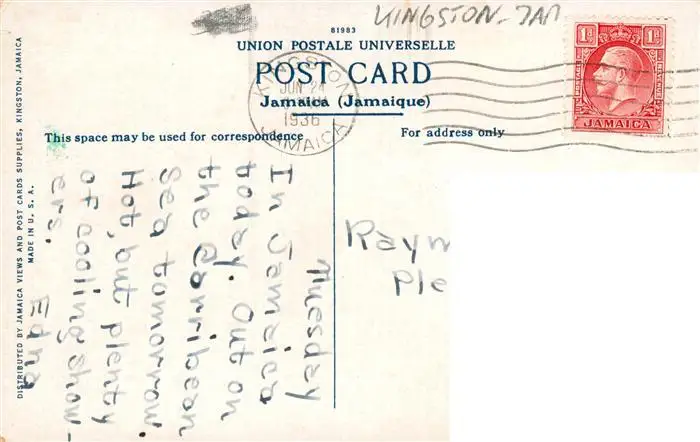 KINGSTON-JAM
81983
UNION POSTALE UNIVERSELLE
POST CARD
Jamaica (Jamaique)
This space may be used for correspondence
For address only
KINGSTON
JUN 24
1936
JAMAICA
1d 1d
JAMAICA
DISTRIBUTED BY JAMAICA VIEWS AND POST CARDS SUPPLIES, KINGSTON, JAMAICA
MADE IN U. S. A.
Tuesday
In Jamaica
today. Out on
the Carribean
Sea tomorrow.
Hot, but plenty
of cooling show-
ers.
Edna
Raym
Ple